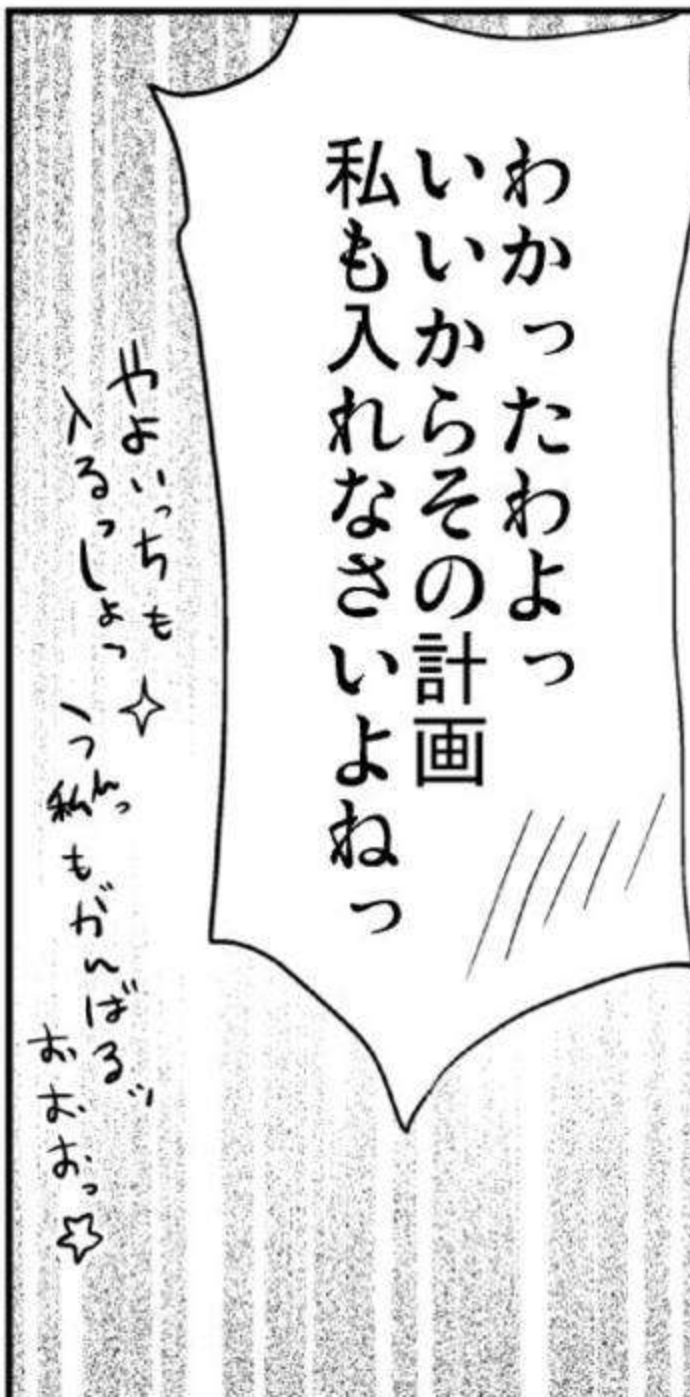 わかったわよっ
いいからその計画
私も入れなさいよねっ
やよいっちも
入るっしょっ
うんっ
私もがんばるッ
おおおっ